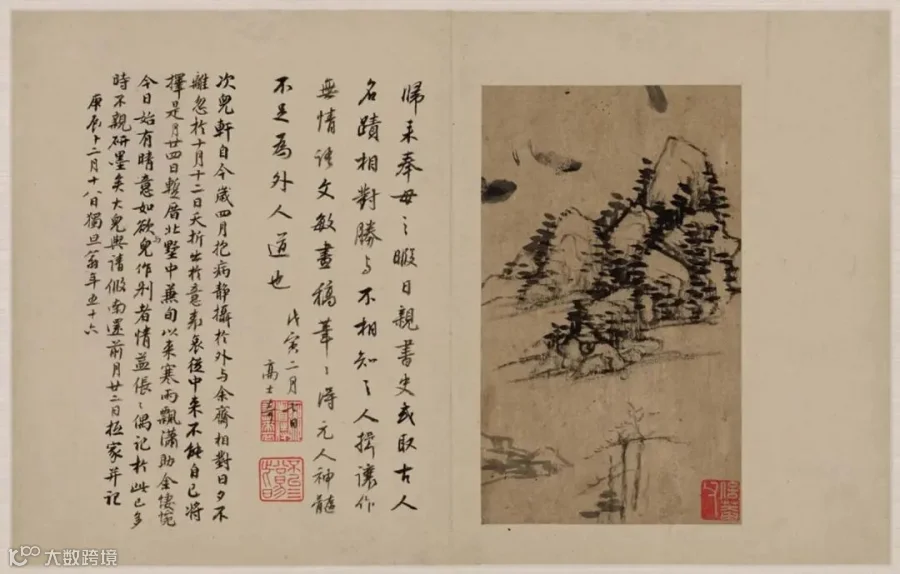 歸来奉母之暇日親書史或取古人
名蹟相對勝与不相知之人揖讓作
無情語文敏畫稿筆〻得元人神髓
不足為外人道也
戊寅二月七日
高士奇
次兒軒自今歲四月抱病靜攝於外与余齋相對日夕不
離忽於十月十二日夭折出於意表哀從中来不能自已將
擇是月廿四日暫厝北墅中兼旬以来寒雨飄瀟助余悽惋
今日始有晴意如欲與兒作别者情益倀〻偶記於此已多
時不親研墨矣大兒輿請假南還前月廿二日抵家并記
庚辰十二月十八日獨旦翁年五十六
大数跨境